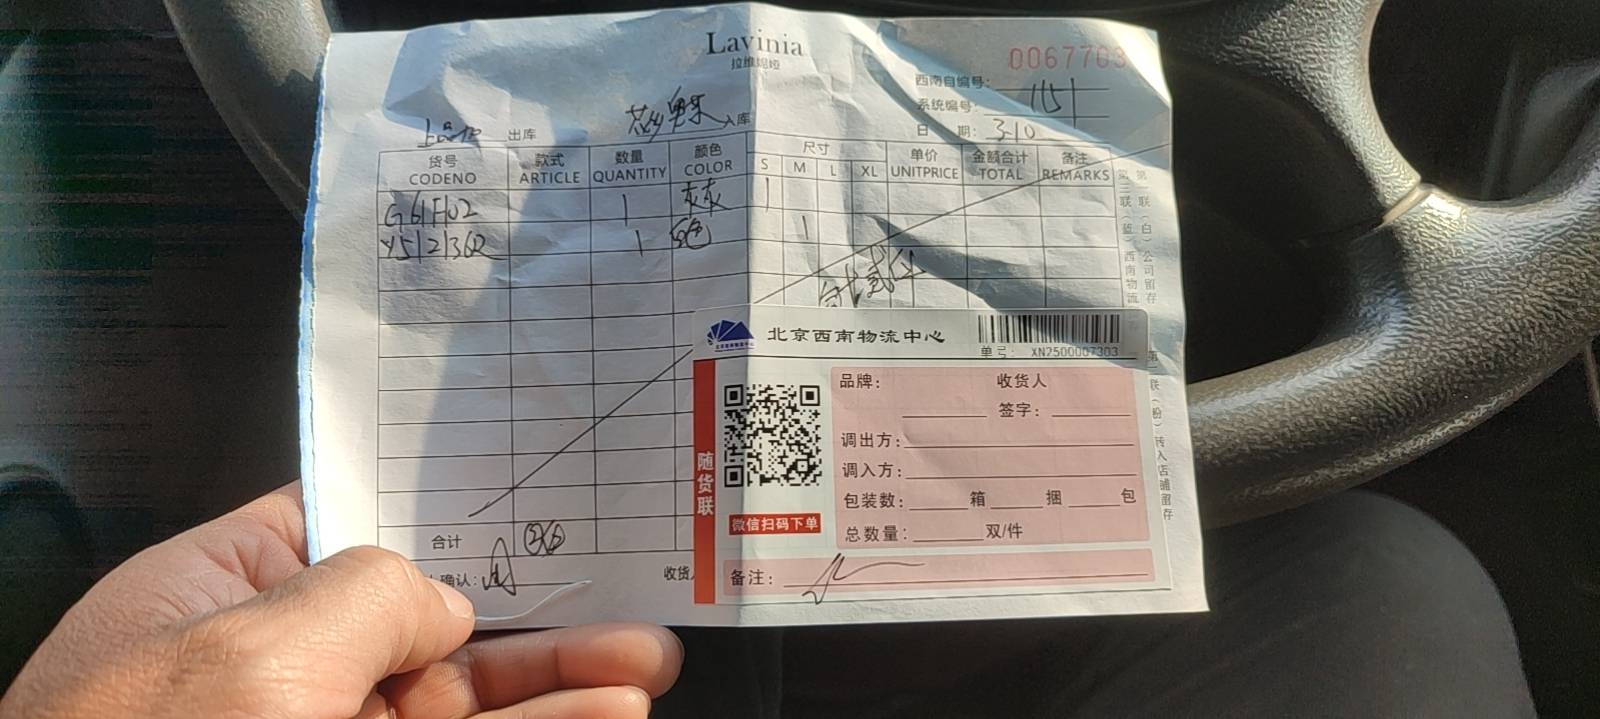 Lavinia
拉维妮娅
0067703
西南自编号:
系统编号: 1151
日 期: 3.10
出库 入库
货号 款式 数量 颜色 尺寸 单价 金额合计 备注
CODENO ARTICLE QUANTITY COLOR S M L XL UNITPRICE TOTAL REMARKS
G61F102 1 灰灰 1
Y5121362 1 白色 1
合计
确认:
收货
第一联(白)公司留存
第三联(蓝)西南物流
联(粉)转入店铺留存
北京西南物流中心
单号: XN2500007303
随货联
微信扫码下单
品牌: 收货人
签字:
调出方:
调入方:
包装数: 箱 捆 包
总数量: 双/件
备注: